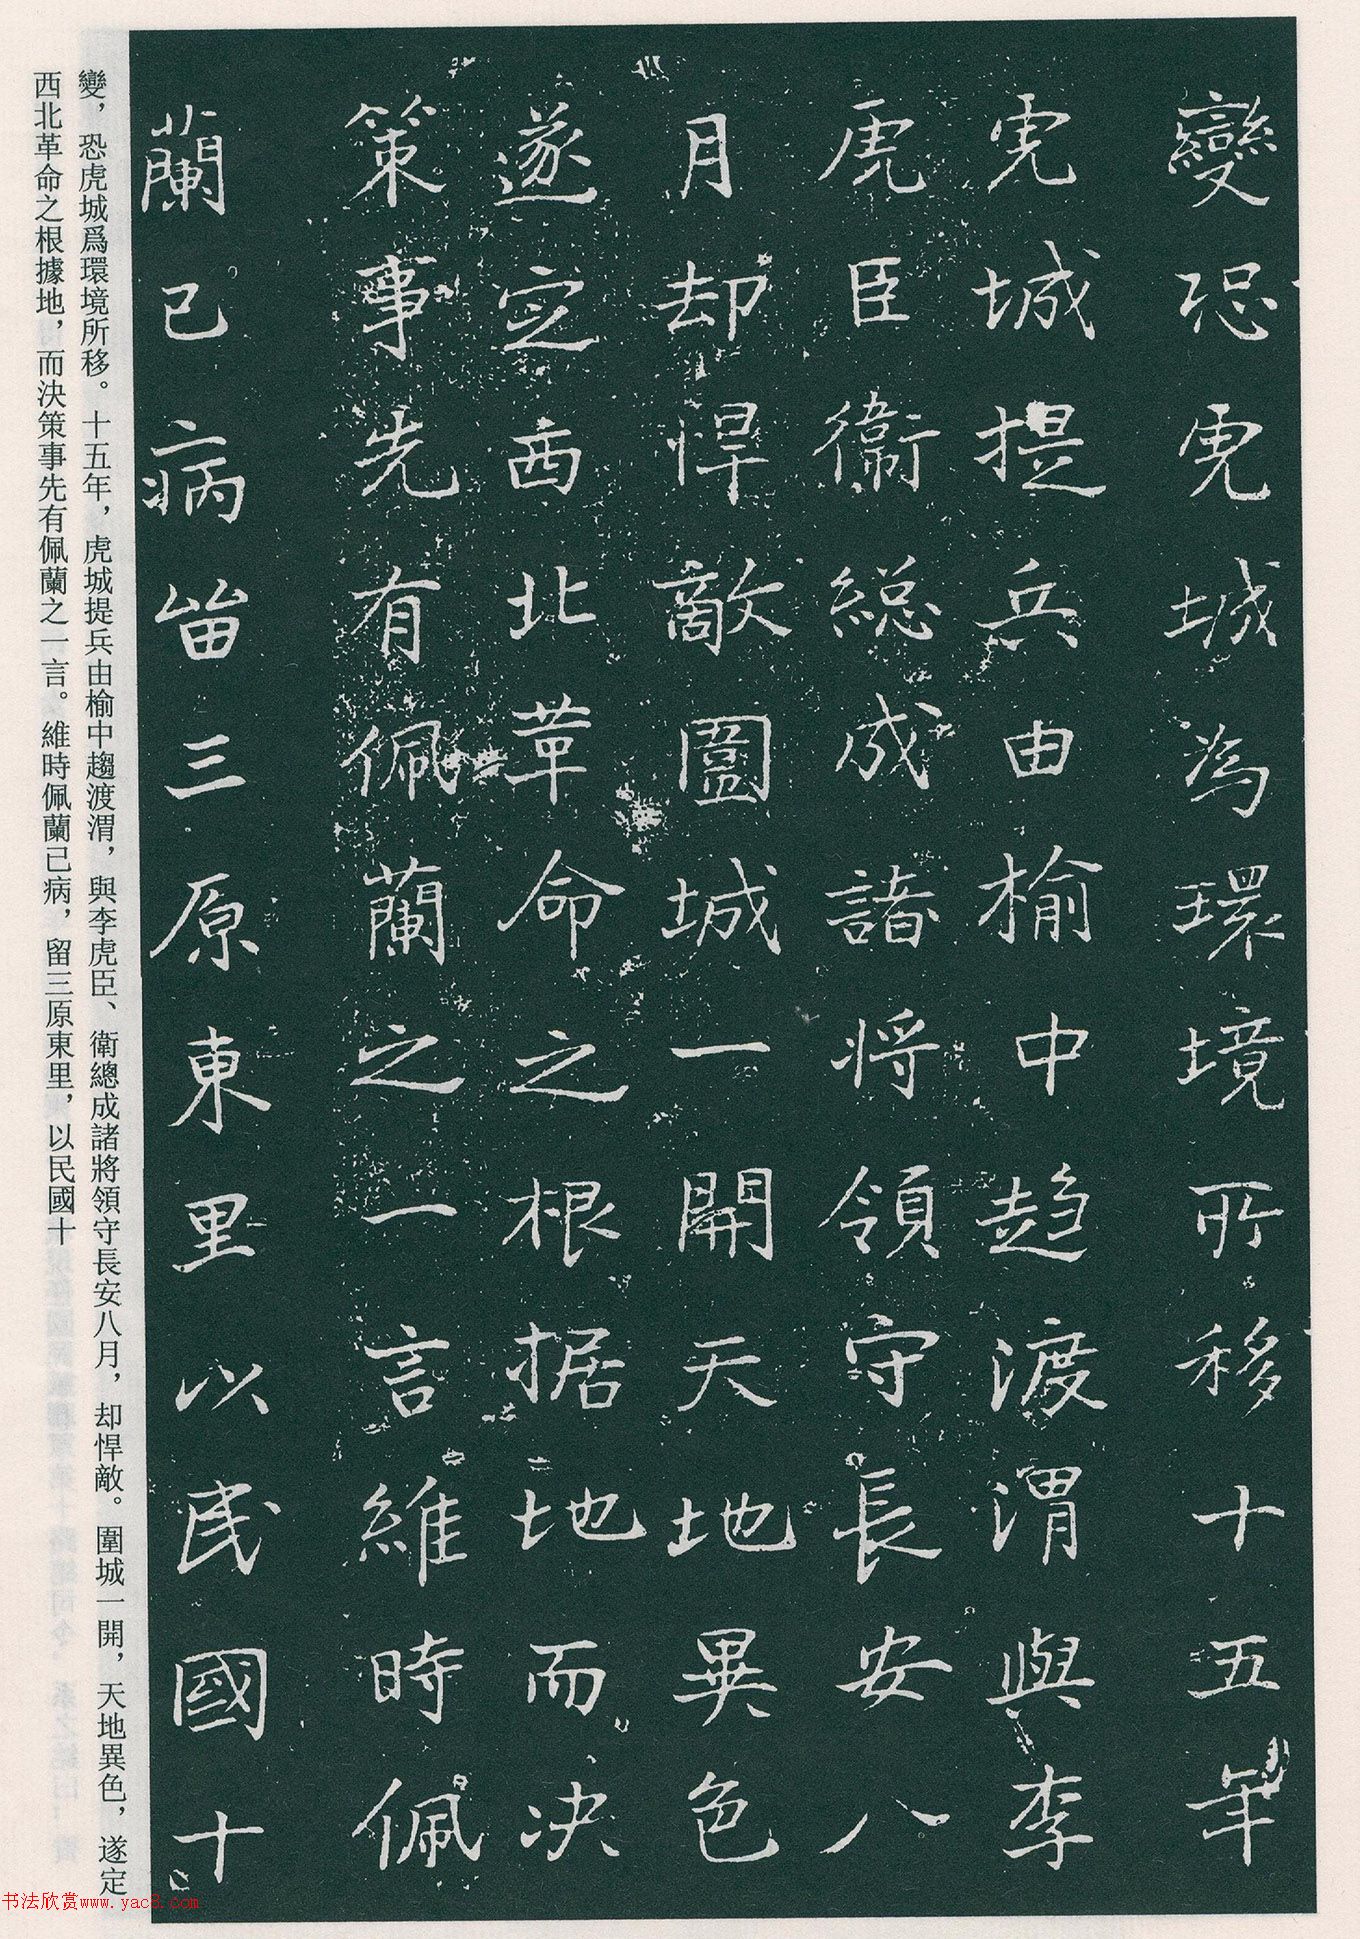 變恐虎城為環境所移十五年
虎城提兵由榆中趨渡渭與李
虎臣衛總成諸將領守長安八
月却悍敵圍城一開天地異色
遂定西北革命之根据地而決
策事先有佩蘭之一言維時佩
蘭已病留三原東里以民國十
變，恐虎城爲環境所移。十五年，虎城提兵由榆中趨渡渭，與李虎臣、衛總成諸將領守長安八月，却悍敵。圍城一開，天地異色，遂定
西北革命之根據地，而決策事先有佩蘭之一言。維時佩蘭已病，留三原東里，以民國十
书法欣赏www.yac8.com